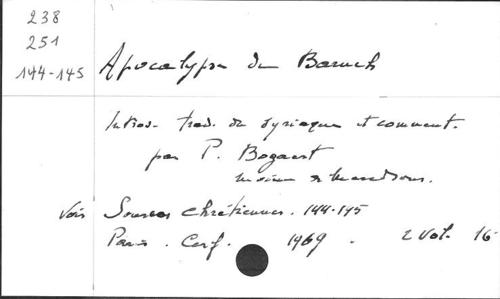 238
251
144-145
Apocalypse de Baruch
Introd. trad. du syriaque et comment.
par P. Bogaert
moine de Maredsous.
Voir Sources Chrétiennes. 144-145
Paris. Cerf. 1969. 2 vol. 16